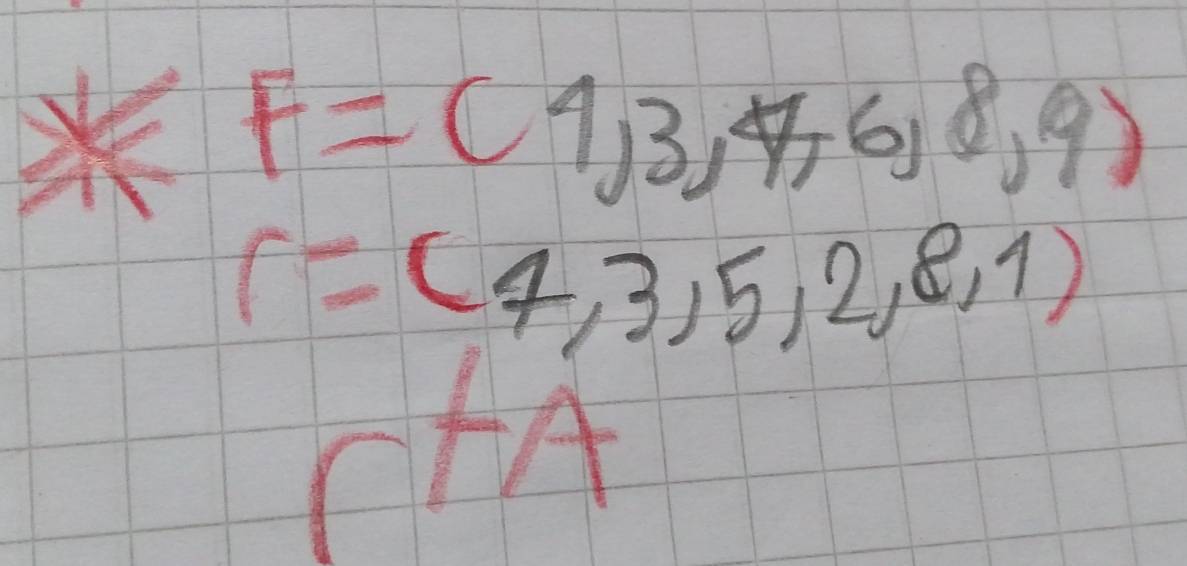 F=(1,3,4,6,8,9)
r=(4,3,5,2,8,1)
r+A